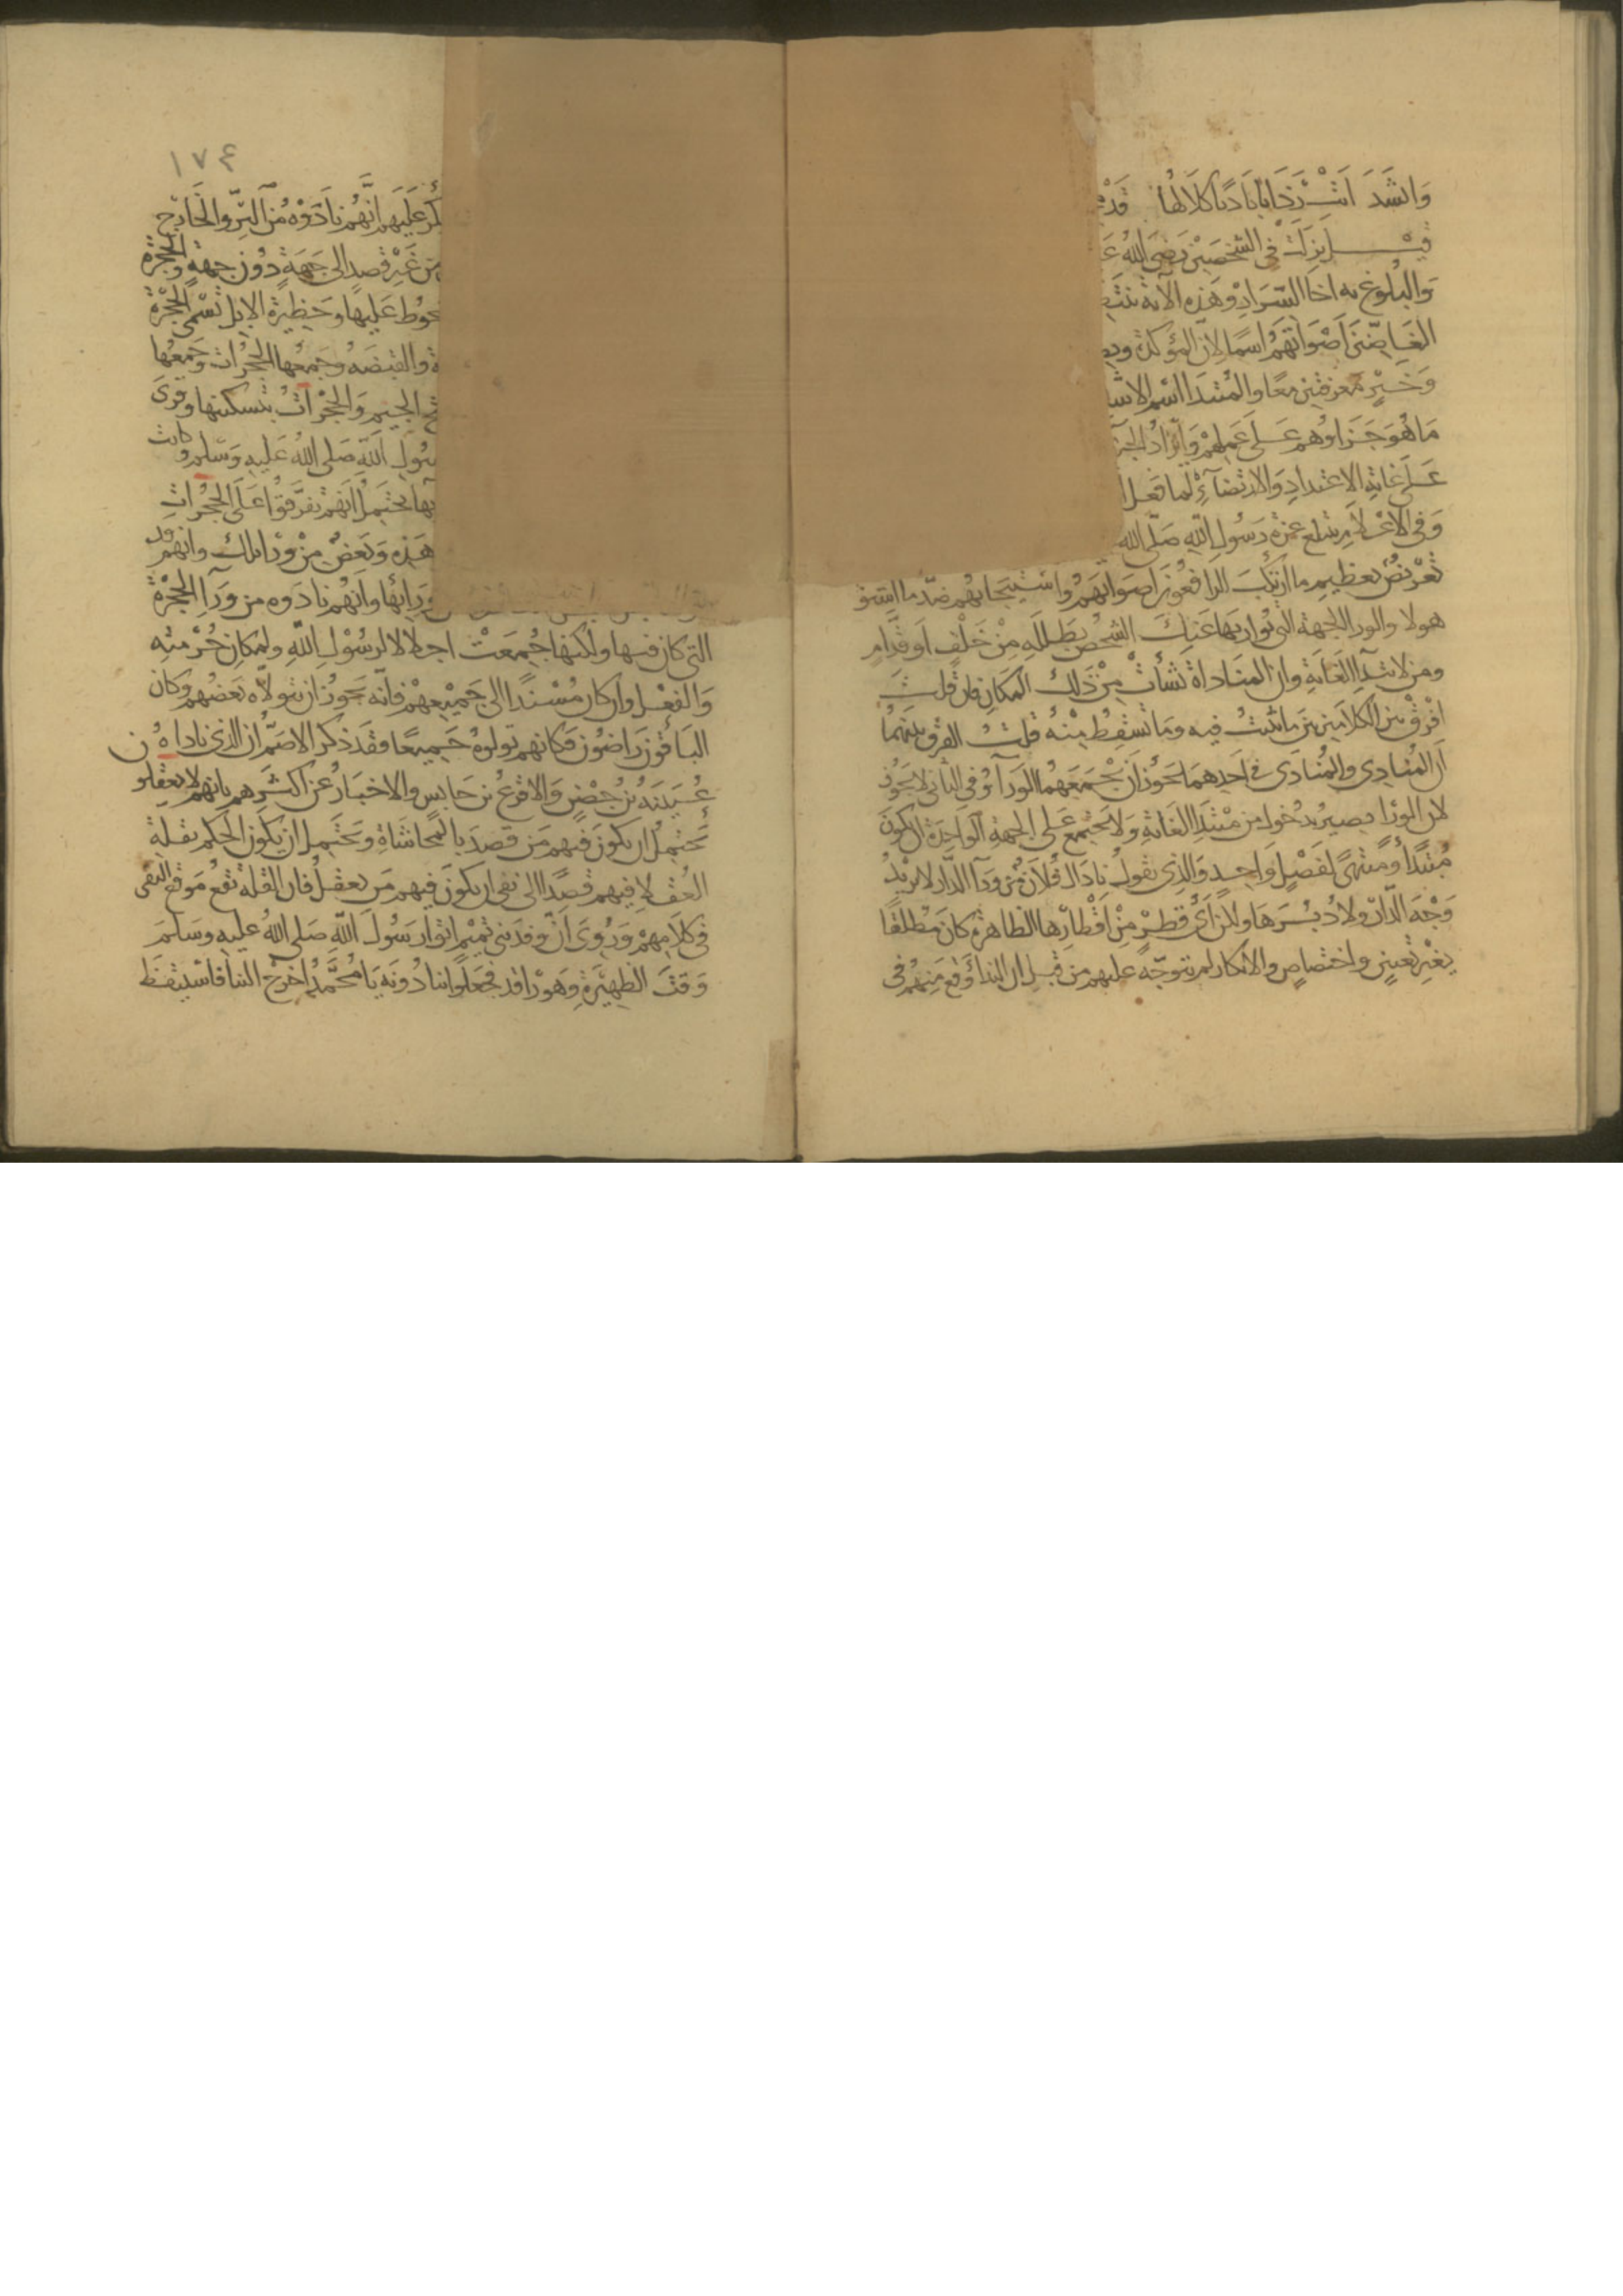 وانشد اتت رذايا باديا كلالها قد
قيل نزلت في الشخصين رضي الله ع
والبلوغ به اخا السرار وهذه الآية بنظ
الغاضين اصواتهم اسما لان المؤكدة و
وخبر معرفتين معا والمبتدأ اسم الاشا
ما هو جزاؤهم على عملهم وايراد الجز
على غاية الاعتداد والارتضاء لما فعل ا
وفي الاعلام بمبلغ عزة رسول الله صلى الله
تعريض بعظيم ما ارتكب الرافعون اصواتهم واستيجابهم ضد ما استو
هولا والورا الجهة التي تواريها عنك الشخص بظلله من خلف او قدام
ومن لابتدا الغاية وان المناداة نشأت من ذلك المكان فان قلت
افرق بين الكلامين بين ما تثبت فيه وما تسقط منه قلت الفرق بينهما
ان المنادي والمنادى في احدهما يجوز ان يجمعهما الوراء وفي الثاني لا يجوز
لان الورا يصير بدخول من مبتدا الغاية ولا يجتمع على الجهة الواحدة ان يكون
مبتدأ ومنتهى لفعل واحد والذي يقول نادا الى فلان من ورآ الدار لا يريد
وجه الدار ولا دبرها ولكن اي قطر من اقطارها الظاهرة كان مطلقا
بغير تعيين واختصاص والانكار لم يتوجه عليهم من قبل ان الندا وقع منهم في
١٧٤
كر عليهم انهم نادوه من البر والخارج
من غير قصد الى جهة دون جهة والحجرة
حوط عليها وحظيرة الابل تسمى الحجرة
ة والقبضة وجمعها الحجرات وجمعها
ح الجيم والحجرات بتسكينها وقرى
سول الله صلى الله عليه وسلم وكانت
يحتمل انهم تفرقوا على الحجرات
هذه وبعض من ورا تلك وانهم
ورائها وانهم نادوه من ورآ الحجرة
التي كان فيها ولكنها جمعت اجلالا لرسول الله ولمكان حرمته
والفعل وان كان مسندا الى جميعهم فانه يجوز ان يتولاه بعضهم وكان
الباقون راضون فكانهم تولوه جميعا فقد ذكر الاصم ان الذي ناداه
عيينة بن حصن والاقرع بن حابس والاخبار عن اكثرهم بانهم لا يعقلو ن
يحتمل ان يكون فيهم من قصد بالمحاشاة ويحتمل ان يكون الحكم بقلة
العقلا فيهم قصدا الى نفي ان يكون فيهم من يعقل فان القلة تقع موقع النفي
في كلامهم وروى ان وفد بني تميم اتوا رسول الله صلى الله عليه وسلم
وقت الظهيرة وهو راقد فجعلوا ينادونه يا محمد اخرج الينا فاستيقظ